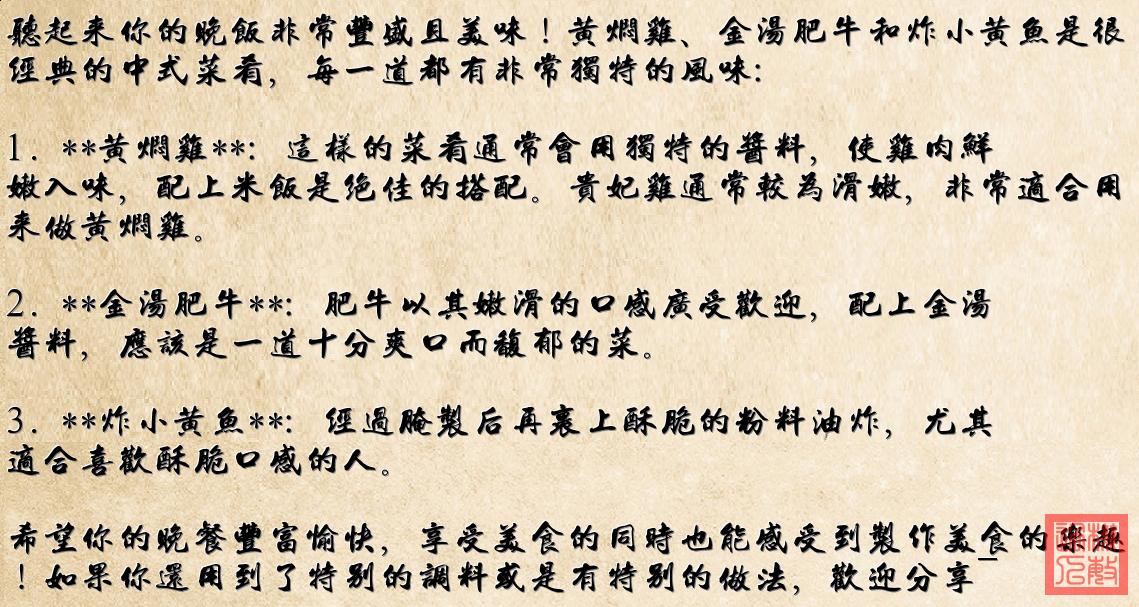 聽起来你的晚飯非常豐盛且美味！黄燜雞、金湯肥牛和炸小黄魚是很
經典的中式菜肴，每一道都有非常獨特的風味：
1. **黄燜雞**：這樣的菜肴通常會用獨特的醬料，使雞肉鮮
嫩入味，配上米飯是絶佳的搭配。貴妃雞通常較為滑嫩，非常適合用
来做黄燜雞。
2. **金湯肥牛**：肥牛以其嫩滑的口感廣受歡迎，配上金湯
醬料，應該是一道十分爽口而馥郁的菜。
3. **炸小黄魚**：經過腌製后再裹上酥脆的粉料油炸，尤其
適合喜歡酥脆口感的人。
希望你的晚餐豐富愉快，享受美食的同時也能感受到製作美食的樂趣
！如果你還用到了特别的調料或是有特别的做法，歡迎分享_